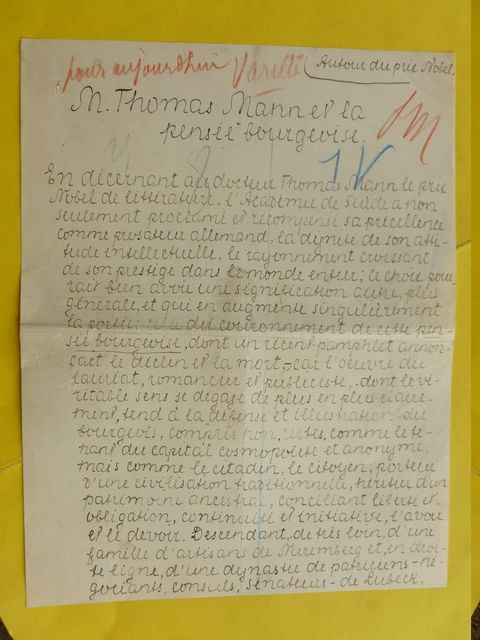 pour aujourdhui Variété
Autour du prix Nobel.
M. Thomas Mann et la
pensée bourgeoise.
En décernant au docteur Thomas Mann le prix
Nobel de littérature, l'Académie de Suède a non
seulement proclamé et récompensé sa précellence
comme prosateur allemand, la dignité de son atti-
tude intellectuelle, le rayonnement croissant
de son prestige dans le monde entier; ce choix pour-
rait bien avoir une signification autre, plus
générale, et qui en augmente singulièrement
la portée: celle du couronnement de cette pen-
sée bourgeoise, dont un récent pamphlet annon-
çait le déclin et la mort, - car l'œuvre du
lauréat, romancier et publiciste, dont le vé-
ritable sens se dégage de plus en plus claire-
ment, tend à la défense et illustration du
bourgeois, compris non, certes, comme le te-
nant du capital cosmopolite et anonyme,
mais comme le citadin, le citoyen, porteur
d'une civilisation traditionnelle, héritier d'un
patrimoine ancestral, conciliant liberté et
obligation, continuité et initiative, l'avoir
et le devoir. Descendant, de très loin, d'une
famille d'artisans de Nuremberg et, en droi-
te ligne, d'une dynastie de patriciens - né-
gociants, consuls, sénateurs - de Lubeck,